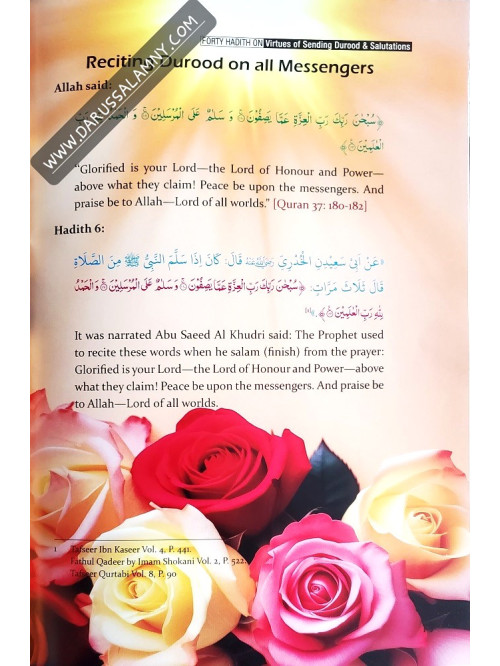 FORTY HADITH ON Virtues of Sending Durood & Salutations
Reciting Durood on all Messengers
Allah said:
﴿سُبْحٰنَ رَبِّكَ رَبِّ الْعِزَّةِ عَمَّا يَصِفُوْنَ ۞ وَ سَلٰمٌ عَلَى الْمُرْسَلِيْنَ ۞ وَ الْحَمْدُ
الْعٰلَمِيْنَ ۞﴾
"Glorified is your Lord—the Lord of Honour and Power—
above what they claim! Peace be upon the messengers. And
praise be to Allah—Lord of all worlds." [Quran 37: 180-182]
Hadith 6:
«عَنْ اَبِي سَعِيْدِنِ الْخُدْرِيِّ رَضِيَ اللهُ عَنْهُ قَالَ: كَانَ اِذَا سَلَّمَ النَّبِيُّ ﷺ مِنَ الصَّلَاةِ
قَالَ ثَلَاثَ مَرَّاتٍ: ﴿سُبْحٰنَ رَبِّكَ رَبِّ الْعِزَّةِ عَمَّا يَصِفُوْنَ ۞ وَسَلٰمٌ عَلَى الْمُرْسَلِيْنَ ۞ وَالْحَمْدُ
لِلّٰهِ رَبِّ الْعٰلَمِيْنَ ۞﴾.
It was narrated Abu Saeed Al Khudri said: The Prophet used
to recite these words when he salam (finish) from the prayer:
Glorified is your Lord—the Lord of Honour and Power—above
what they claim! Peace be upon the messengers. And praise be
to Allah—Lord of all worlds.
1 Tafseer Ibn Kaseer Vol. 4, P. 441.
Fathul Qadeer by Imam Shokani Vol. 2, P. 522.
Tafseer Qurtabi Vol. 8, P. 90
WWW.DARUSSALAMNY.COM